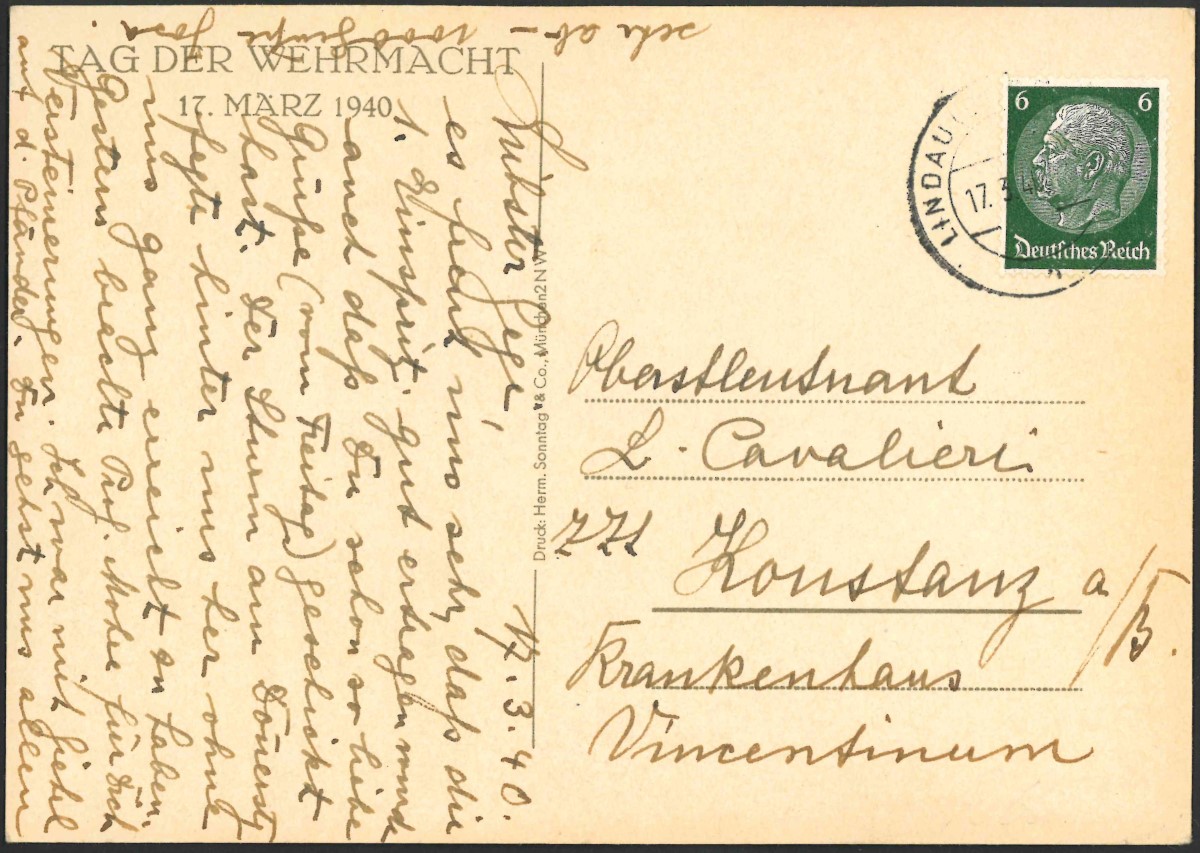 TAG DER WEHRMACHT
17. MÄRZ 1940
17.3.40.
Liebster Gege!
es freut uns sehr, daß die
1. Einspritz. gut ertragen wurde
und daß Du schon so liebe
Grüße (vom Freitag) geschickt
hast. Der Sturm am Donerstg
fegte hinter uns her ohne
uns ganz erreicht zu haben.
Gestern brachte Prof. für Dich
Versteinerungen. Ich war mit
auf d. Pfänder. Du gehst uns allen
sehr ab – 1000 Grüße
Druck: Herm. Sonntag & Co., München 2 NW
LINDAU
17.3.4
6 6
Deutsches Reich
Oberstleutnant
L. Cavalieri
zZt Konstanz a/B.
Krankenhaus
Vincentinum